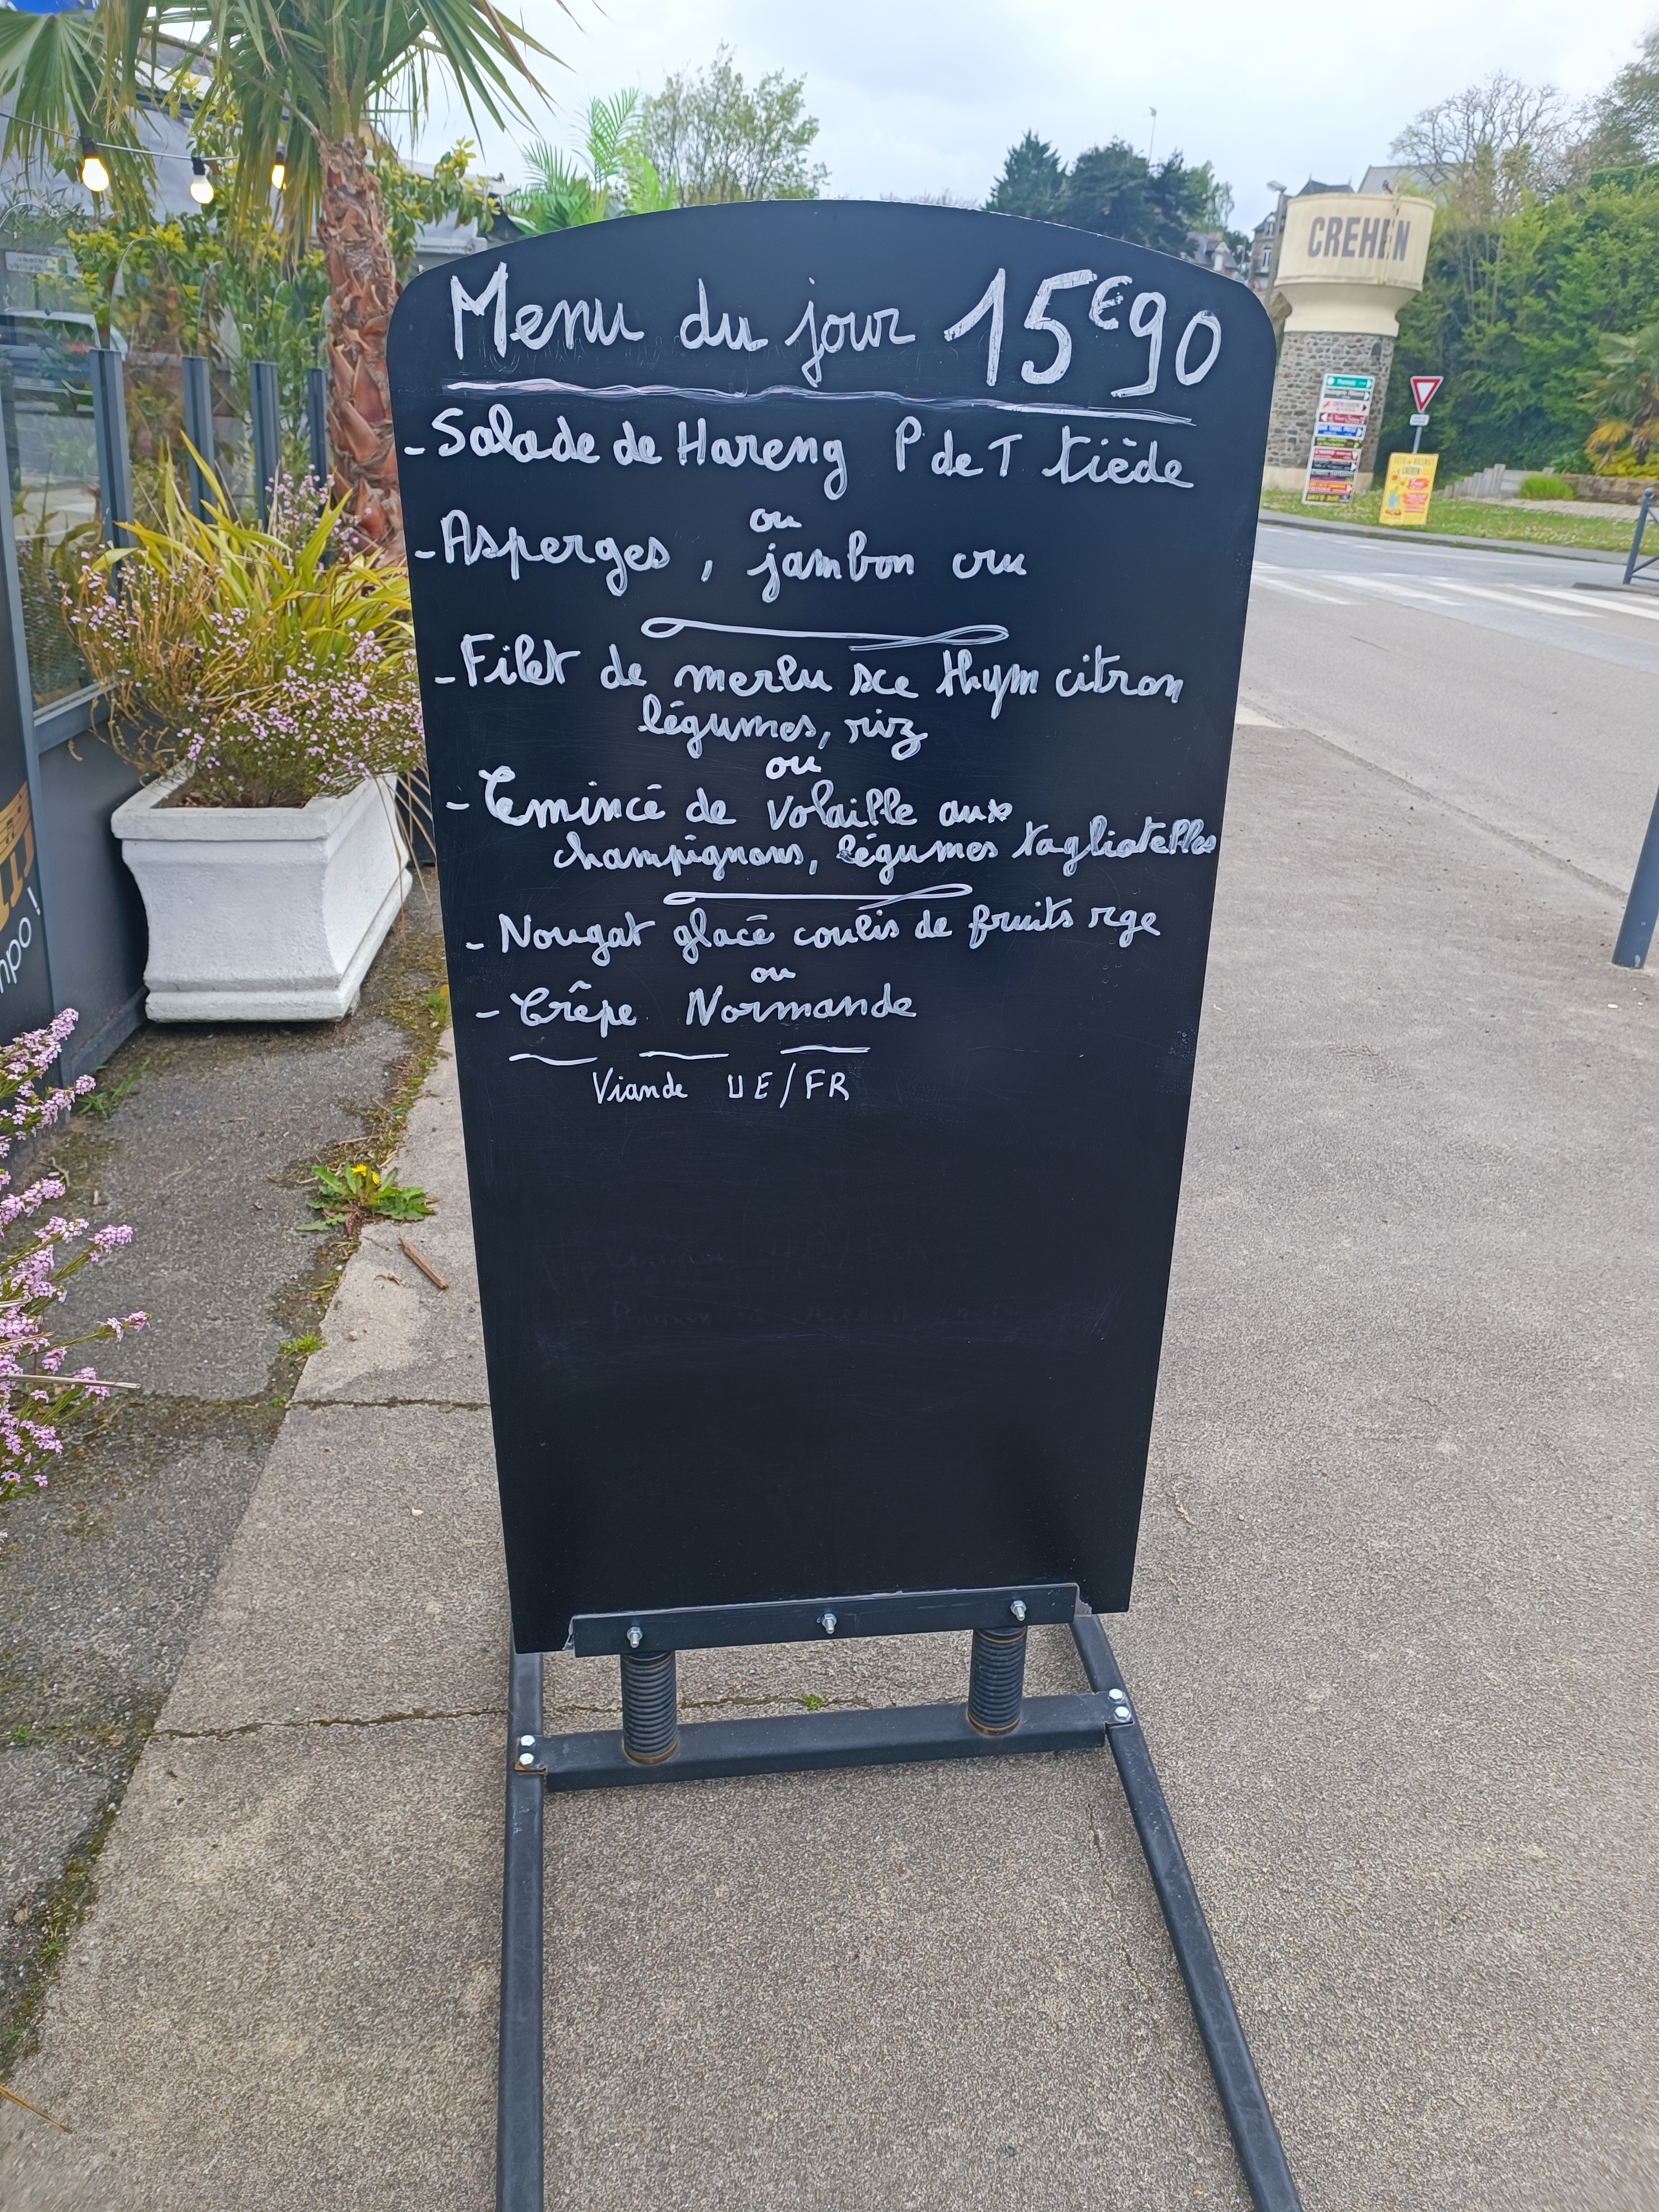 CREHEN
Menu du jour 15€90
- Salade de Hareng P de T tiède
ou
- Asperges, jambon cru
- Filet de merlu sce thym citron
légumes, riz
ou
- Emincé de volaille aux
champignons, légumes tagliatelles
- Nougat glacé coulis de fruits rge
ou
- Crêpe Normande
Viande UE/FR
mpo !